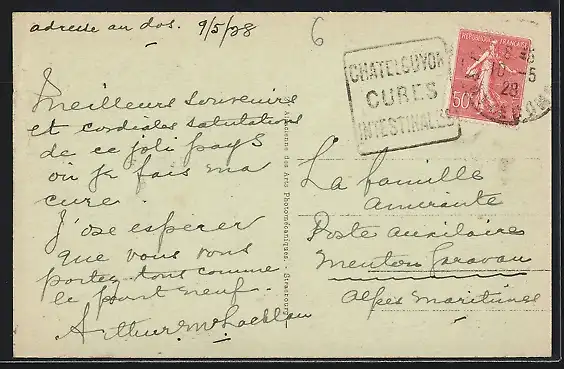 adresse au dos. 9/5/28
6
Meilleurs souvenirs
et cordiales salutations
de ce joli pays
où je fais ma
cure.
J'ose espérer
que vous vous
portez tous comme
le pont neuf.
Arthur McLachlan
Alsacienne des Arts Photomécaniques. - Strasbourg
CHATELGUYON
CURES
INTESTINALES
REPUBLIQUE FRANÇAISE
50
10-5
28
La famille
Amirante
Poste auxiliaire
Menton Garavan
Alpes Maritimes